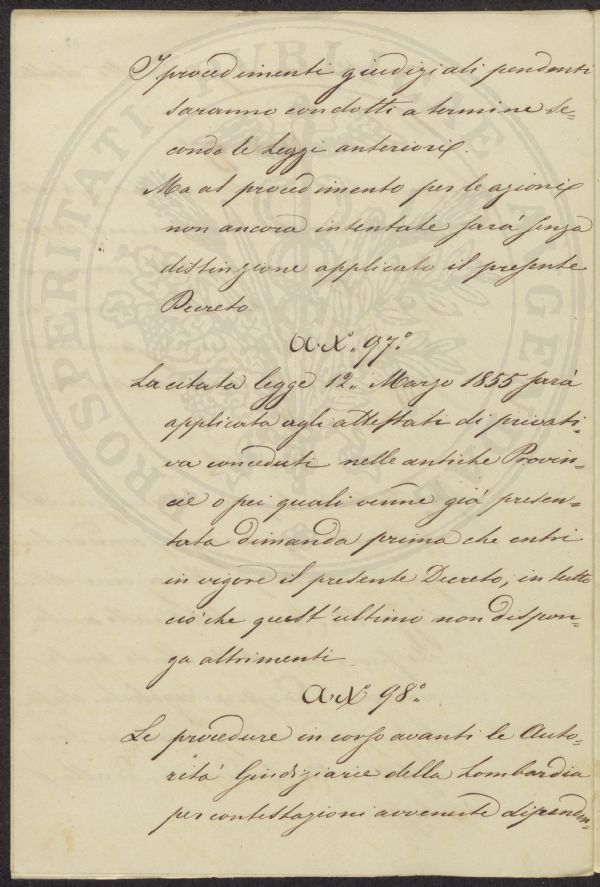 I procedimenti giudiziali pendenti
saranno condotti a termine se=
condo le Leggi anteriori.
Ma al procedimento per le azioni
non ancora intentate sarà senza
distinzione applicato il presente
Decreto.
Art.° 97.°
La citata legge 12. Marzo 1855 sarà
applicata agli attestati di privati=
va conceduti nelle antiche Provin=
cie o pei quali venne già presen=
tata dimanda prima che entri
in vigore il presente Decreto, in tutto
ciò che quest'ultimo non dispon=
ga altrimenti.
Art.° 98.°
Le procedure in corso avanti le Auto=
rità Giudiziarie della Lombardia
per contestazioni avvenute dipenden=
PROSPERITATI PUBLICAE AUGENDAE